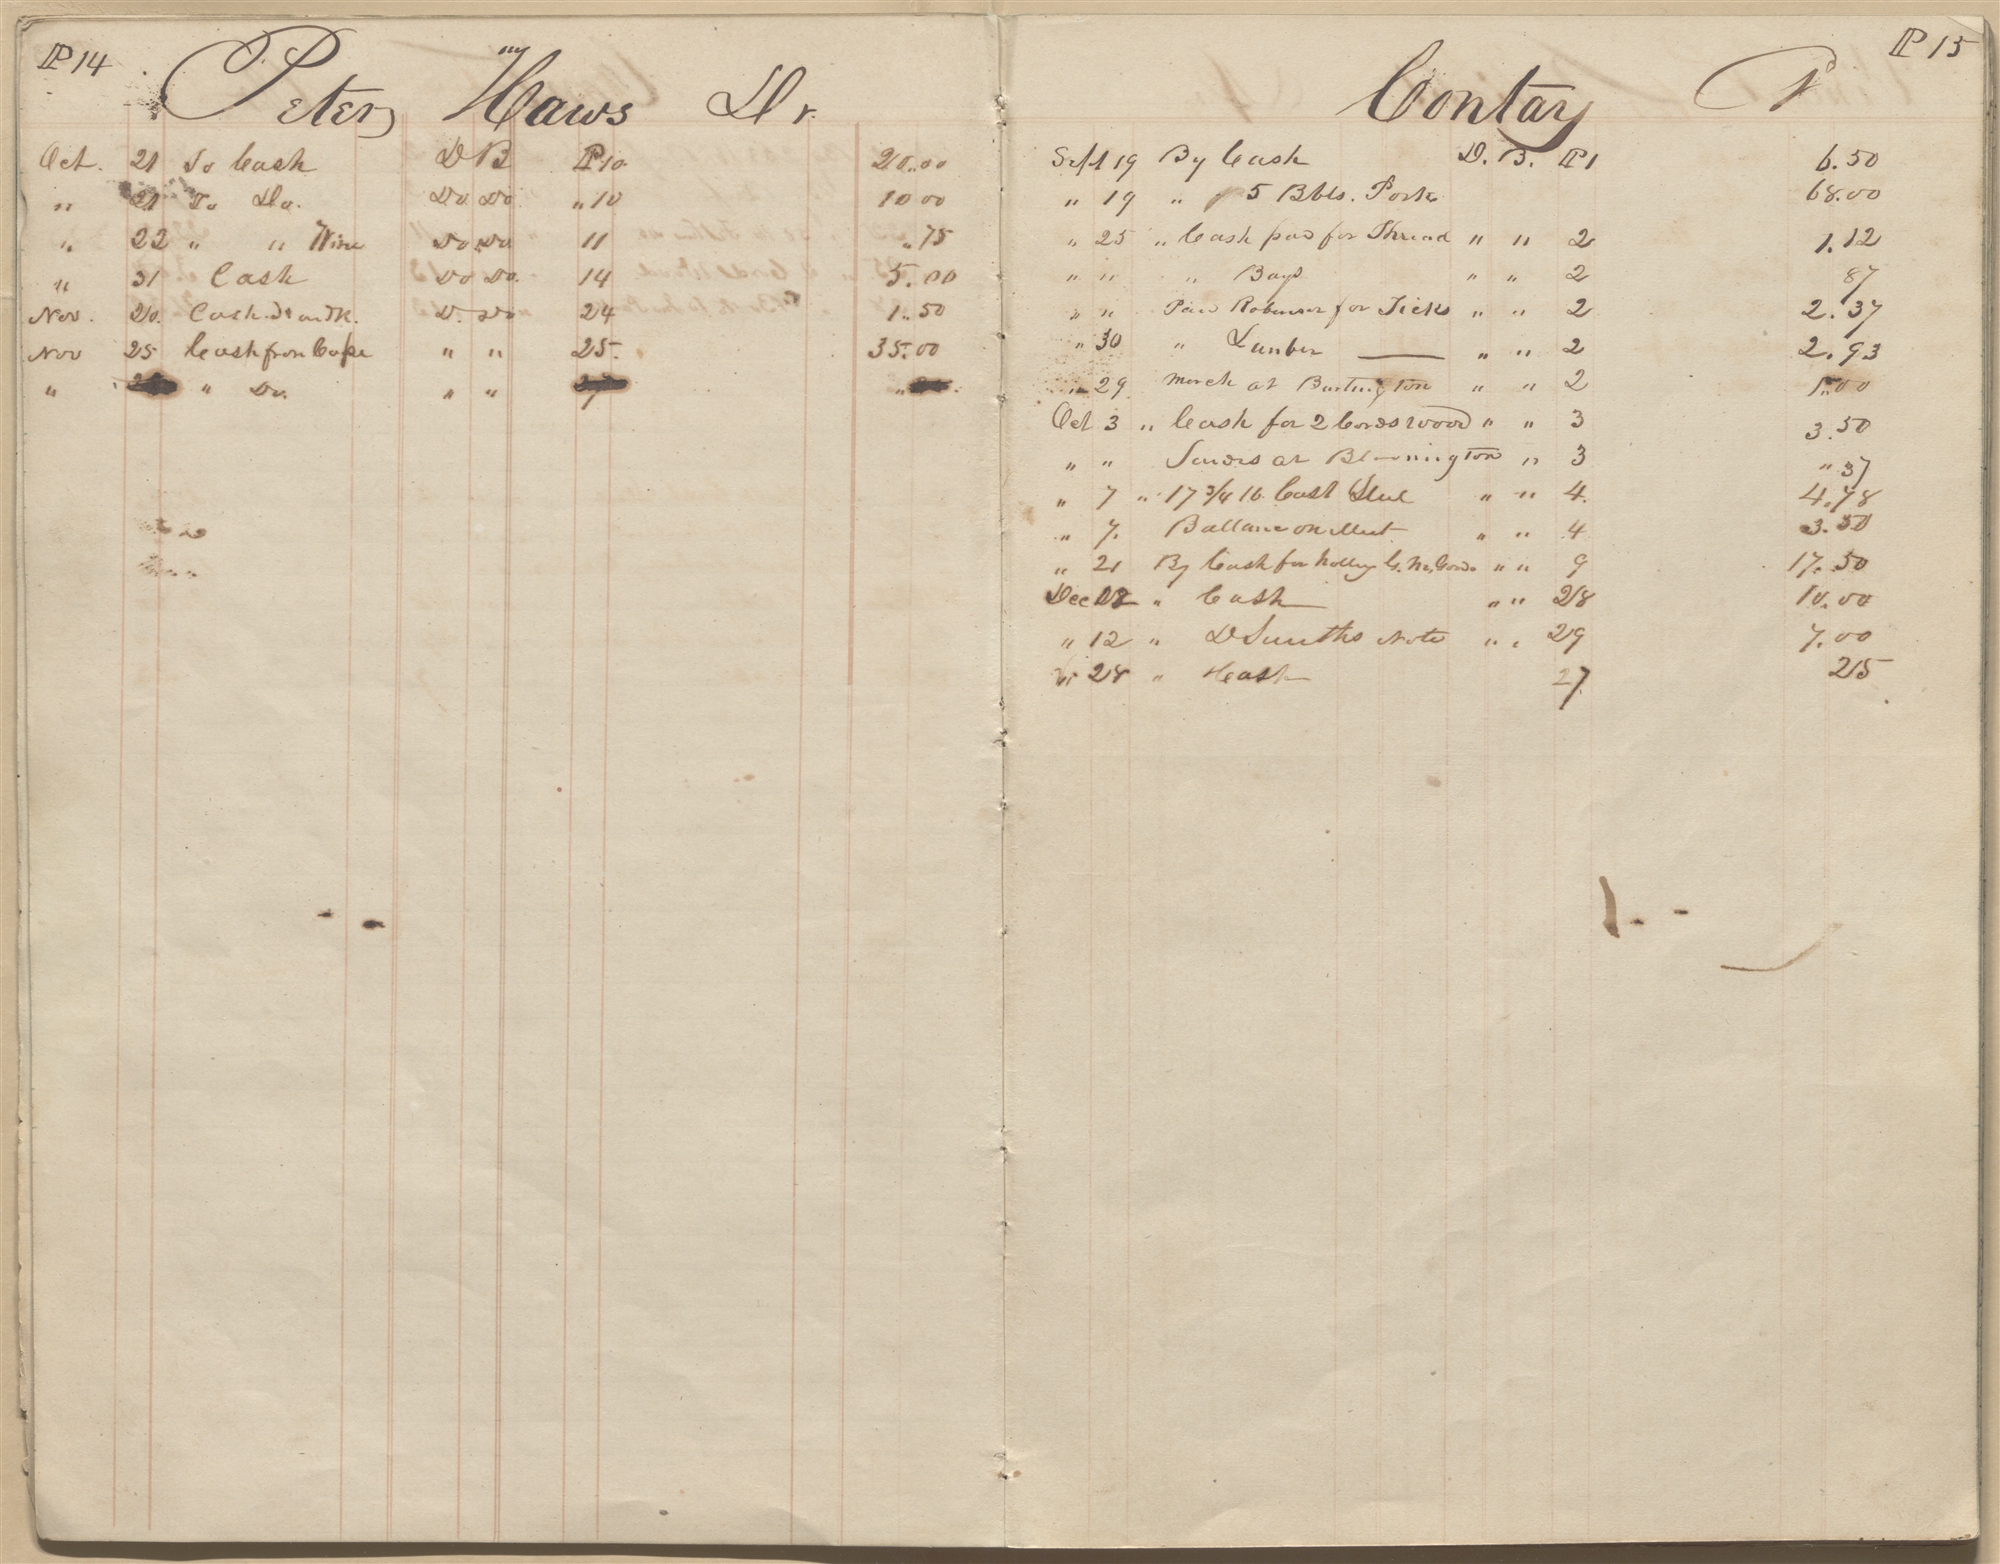 P 14
Peter Haws Dr.
Oct. 21 To Cash D B P 10 20..00
" 21 To Do. Do Do " 10 10 00
" 22 " " Wine Do Do 11 ".75
" 31 Cash Do Do. 14 5.00
Nov. 20. Cash. D. Do 24 1..50
Nov 25 Cash from Cape " " 25. 35.00
" " Do. " "
P 15
Contay
Sept 19 By Cash D. B. P 1 6.50
" 19 " 5 Bbls. Pork 68.00
" 25 " Cash paid for Thread " " 2 1.12
" " " Bags " " 2 87
" " Paid Robinson for Ticks " " 2 2.37
" 30 " Lumber " " 2 2.93
" 29 Merch at Burlington " " 2 1..00
Oct 3 " Cash for 2 Cords wood " " 3 3.50
" " Sundres at Bloomington " 3 " 37
" 7 " 17 3/4 lb. Cast Steel " " 4. 4.78
" 7. Ballance on Meet " " 4 3.50
" 21 By Cash for " " 9 17.50
Dec " Cash " " 28 10.00
" 12 " D Smiths Note " " 29 7.00
28 " Cash 27 25